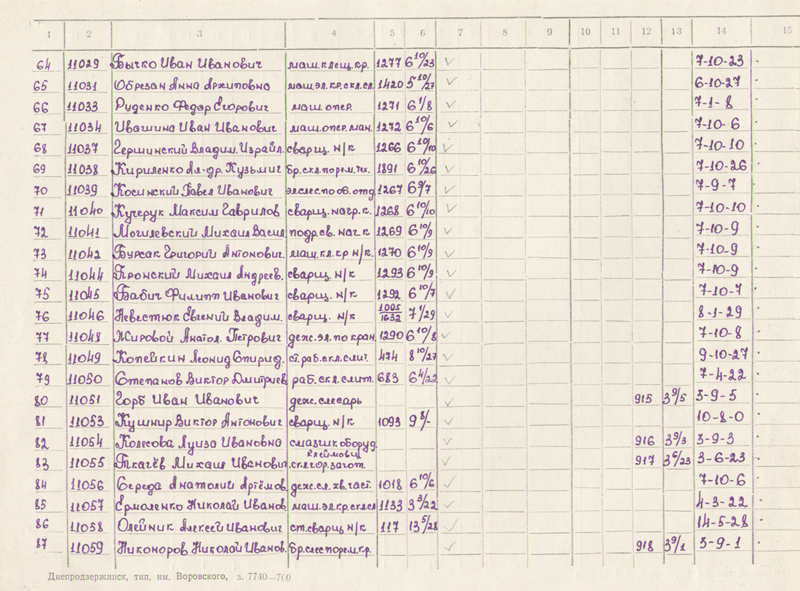 1 2 3 4 5 6 7 8 9 10 11 12 13 14 15
64 11029 Бычко Иван Иванович маш.клещ.кр. 1277 6 10/23 ✓ 7-10-23
65 11031 Обрезан Анна Архиповна маш.эл.кр.скл.сл. 1420 5 10/27 ✓ 6-10-27
66 11033 Руденко Федор Егорович маш.опер. 1271 6 1/8 ✓ 7-1-8
67 11034 Ивашина Иван Иванович маш.опер.ман. 1272 6 10/6 ✓ 7-10-6
68 11037 Гершинский Владим. Израйл. сварщ. н/к 1266 6 10/10 ✓ 7-10-10
69 11038 Кириленко Ал-др. Кузьмич бр.сл.порем. 1891 6 10/26 ✓ 7-10-26
70 11039 Косинский Павел Иванович эл.слес.по об.отд. 1267 6 9/7 ✓ 7-9-7
71 11040 Кучерук Максим Гаврилов сварщ. нагр.к. 1268 6 10/10 ✓ 7-10-10
72 11041 Могилевский Михаил Васил. подр.св. наг.к 1269 6 10/9 ✓ 7-10-9
73 11042 Бурсак Григорий Антонович. маш.кл.кр н/к. 1270 6 10/9 ✓ 7-10-9
74 11044 Пронский Михаил Андреев. сварщ. н/к 1293 6 10/9 ✓ 7-10-9
75 11045 Бабич Филипп Иванович сварщ. н/к 1292 6 10/7 ✓ 7-10-7
76 11046 Невестюк Евгений Владим. сварщ. н/к 1005/1632 7 1/29 ✓ 8-1-29
77 11048 Жировой Анатол. Петрович деж.эл.по кран. 1290 6 10/8 ✓ 7-10-8
78 11049 Копейкин Леонид Спирид. ст.раб.скл.слит. 474 8 10/27 ✓ 9-10-27
79 11050 Степанов Виктор Дмитриев раб.скл.слит. 683 6 4/22 ✓ 7-4-22
80 11051 Горб Иван Иванович деж.слесарь ✓ 915 3 9/5 3-9-5
81 11053 Кушнир Виктор Антонович сварщ. н/к 1093 9 8/- ✓ 10-8-0
82 11054 Колесова Луиза Ивановна смазчик оборуд. ✓ 916 3 9/3 3-9-3
83 11055 Ткачёв Михаил Иванович клеймовщ. скл.гор.загот. ✓ 917 3 6/23 3-6-23
84 11056 Середа Анатолий Артёмов. деж.сл.хв.част. 1018 6 10/6 ✓ 7-10-6
85 11057 Ермоленко Николай Иванов маш.эл.кр.скл.сл 1133 3 3/22 ✓ 4-3-22
86 11058 Олейник Алексей Иванович ст.сварщ н/к 117 13 5/28 ✓ 14-5-28
87 11059 Никоноров Николай Иванов. бр.слес.порем.кр. ✓ 918 3 9/1 3-9-1
Днепродзержинск, тип. им. Воровского, з. 7740—700